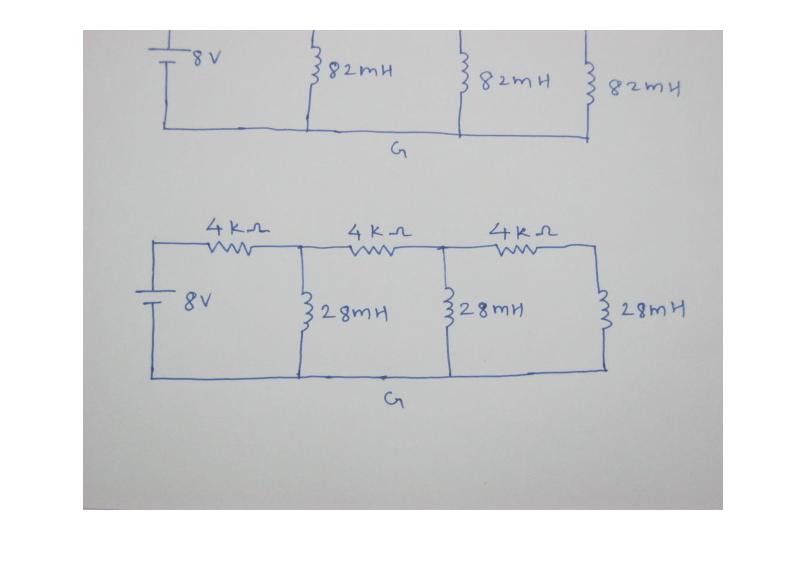 8V
82mH
82mH
82mH
G
4kΩ 4kΩ 4kΩ
8V 28mH 28mH 28mH
G